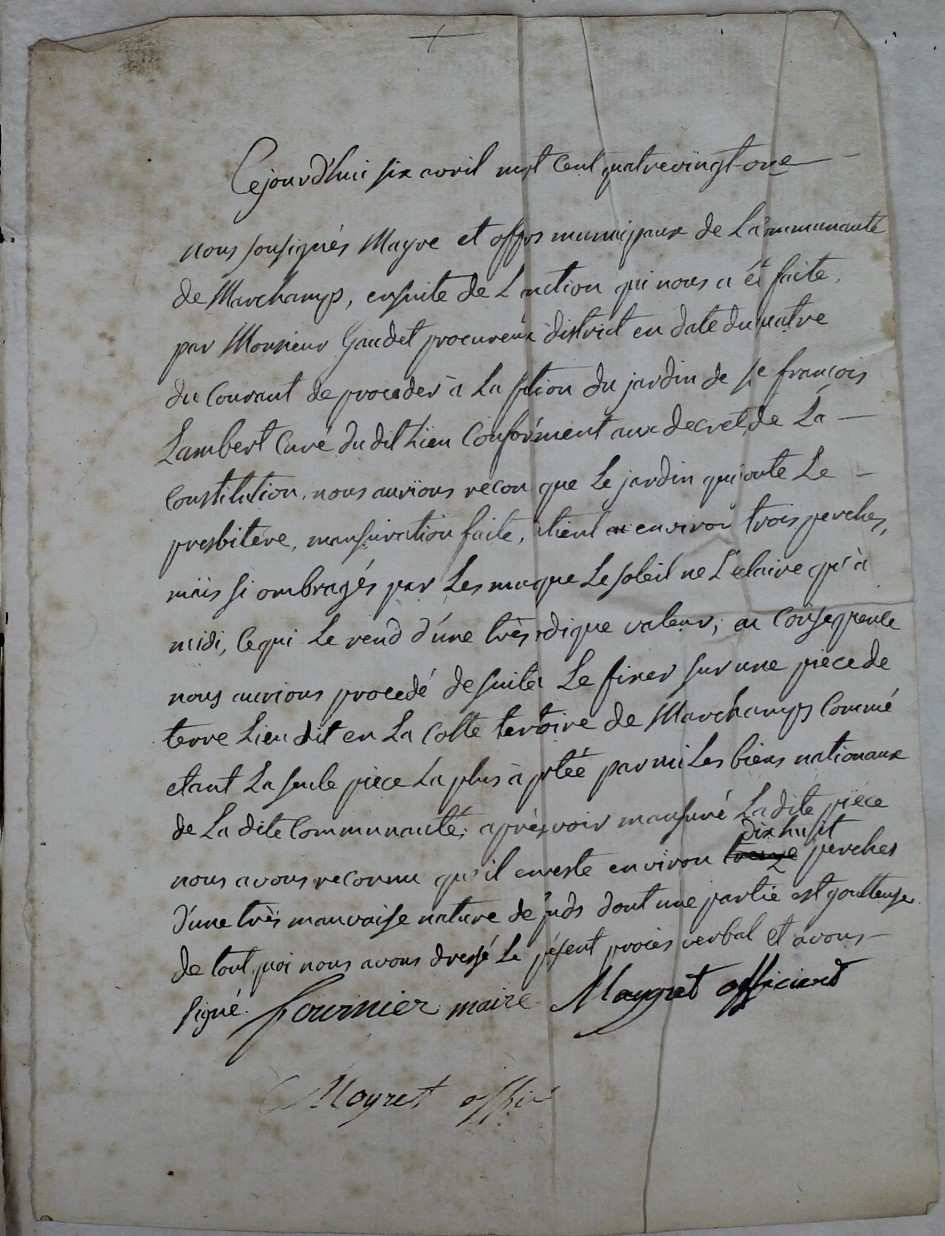 Cejourd'hui six avril mgt cent quatrevingt onze
nous sousignés Mayre et offirs municipaux de La Communauté
de Marchamps, ensuite de L' qui nous a été faite
par Monsieur Gaudet procureur district en date du quatre
du Courant de proceder à La du jardin de sr françois
Lambert Curé du dit Lieu Conforment aux decret de La
Constitution, nous aurions recon que Le jardin qui Le
presbitère, mansuration faite, tient environ trois perches,
mais si ombragés par Les Le soleil ne L'eclaire qu'à
midi, Ce qui Le rend d'une très valeur; en Conséquence
nous aurions procedé de suite Le fixer sur une piece de
terre Lieu dit en La Cotte teroire de Marchamps Comme
étant La seule piece La plus à parmi Les biens nationaux
de La dite Communauté; après voir mansuré La dite pièce
nous avons reconnu qu'il en reste environ dix huit perches
d'une très mauvaise nature de fonds dont une partie est goutteuse
de tout quoi nous avons dressé Le présent procès verbal et avons
signé. fournier maire Mayret officier
Mayret offici